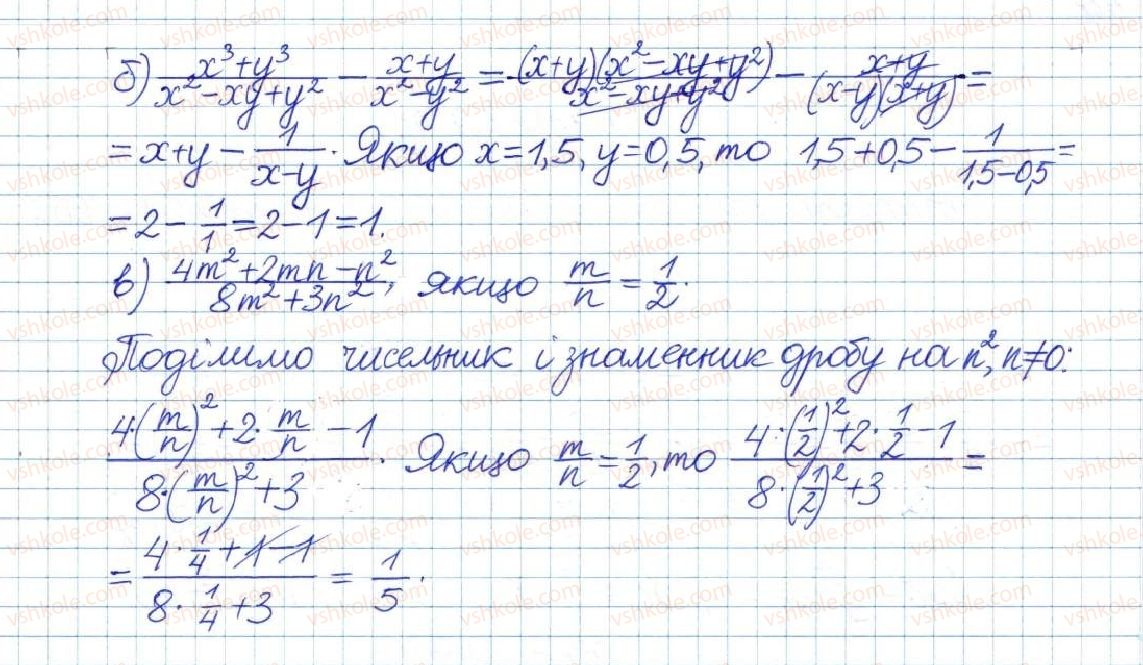 б) (x³+y³)/(x²-xy+y²) - (x+y)/(x²-y²) = ((x+y)(x²-xy+y²))/(x²-xy+y²) - (x+y)/((x-y)(x+y)) =
= x+y - 1/(x-y). Якщо x=1,5, y=0,5, то 1,5+0,5 - 1/(1,5-0,5) =
= 2 - 1/1 = 2-1=1.
в) (4m²+2mn-n²)/(8m²+3n²), якщо m/n = 1/2.
Поділимо чисельник і знаменник дробу на n², n≠0:
(4·(m/n)²+2·m/n-1)/(8·(m/n)²+3). Якщо m/n=1/2, то (4·(1/2)²+2·1/2-1)/(8·(1/2)²+3) =
= (4·1/4+1-1)/(8·1/4+3) = 1/5.
vshkole.com